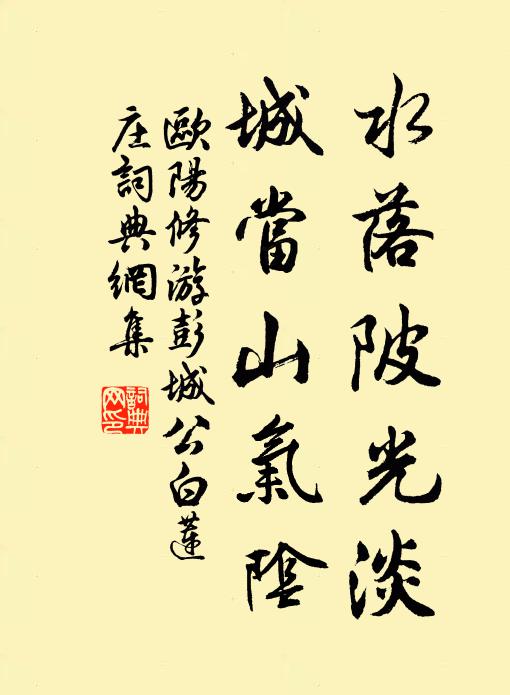 水落陂光淡
城當山氣陰
歐陽修游彭城公白蓮
庄詞典網集
詞典
网印